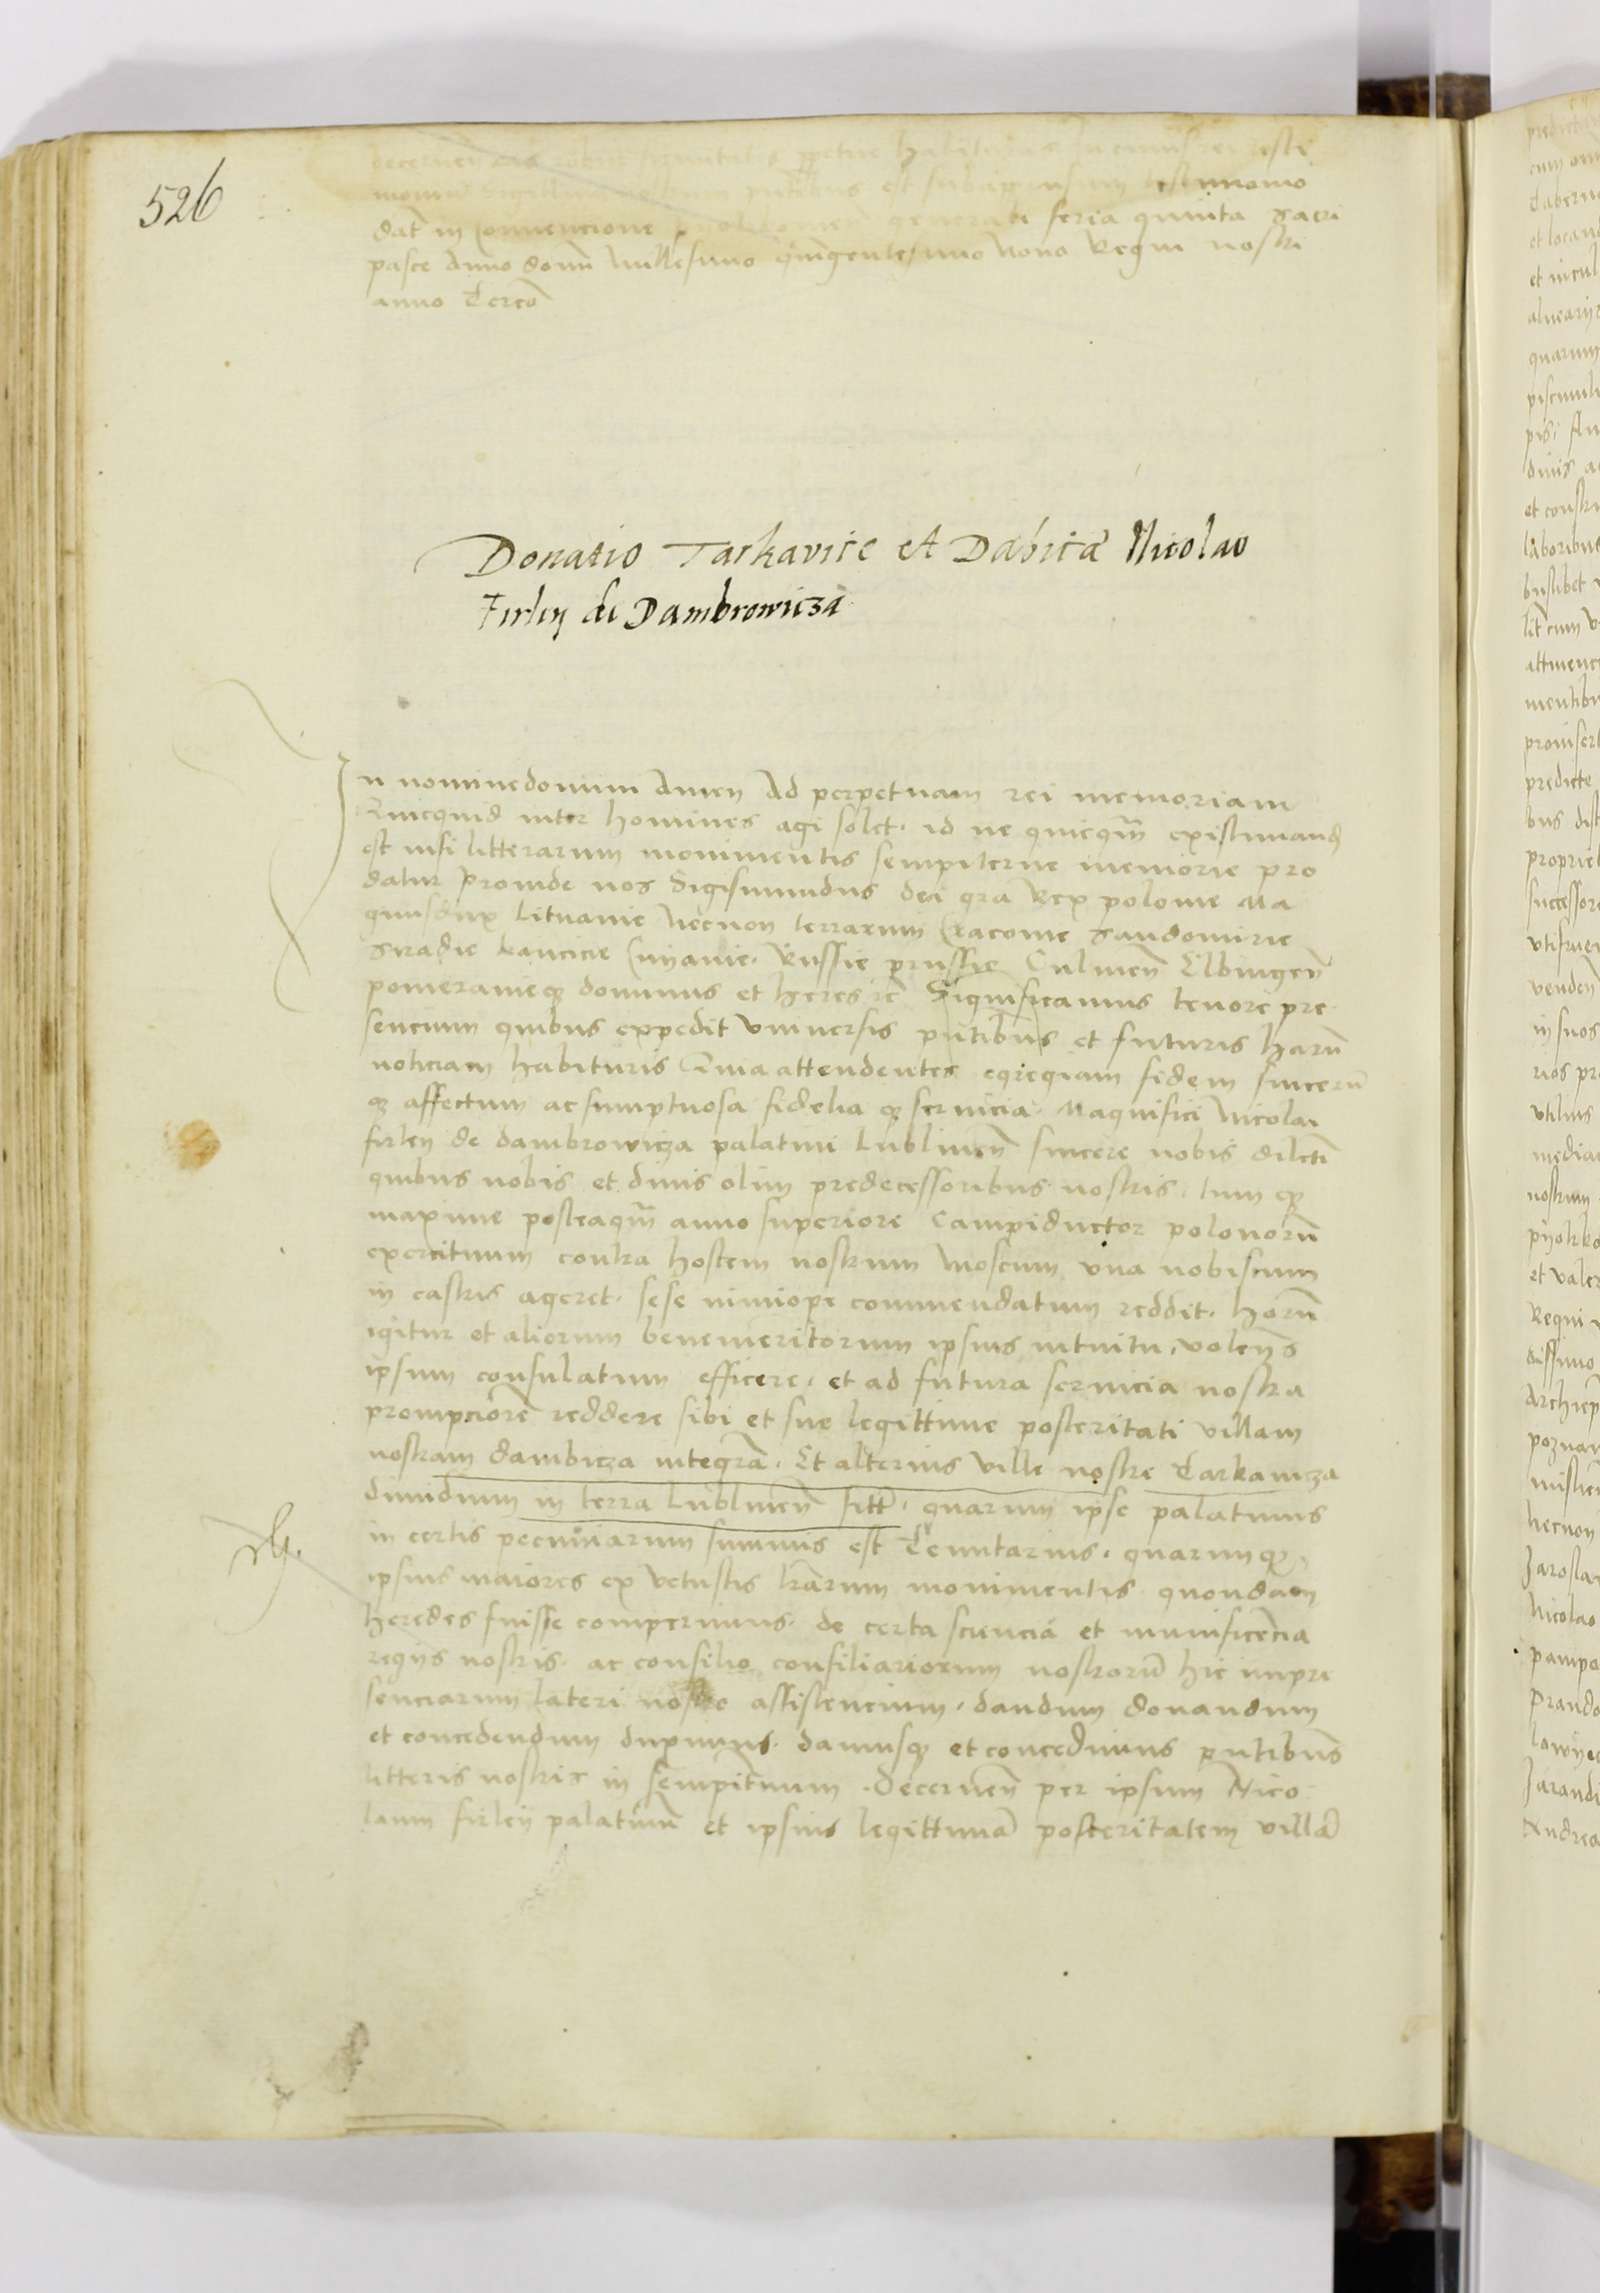 526
decernen eas robur firmitatis ppetue habituras In cuius rei testi
dat in Convencione generali feria quinta sacri
pasce Anno domi Millesimo quingentesimo Nono Regni nostri
anno Tercio
Donatio Tarkavice et Dabice Nicolao
Firleij de Dambrowicza
In nomine domini Amen Ad perpetuam rei memoriam
Quicquid inter homines agi solet. id ne quicqm existimand
est nisi litterarum monimentis sempiterne memorie pro
datur Proinde nos Sigismundus dei gra Rex polonie Ma
gnusdux Lituanie Necnon terrarum Cracovie Sandomirie
Siradie Lancicie Cuyavie. Russie prussie Culmen Elbingen
pomeranieq dominus et heres etc Significamus tenore pre
sencium quibus expedit Universis pntibus et futuris harum
noticiam habituris Quia attendentes egregiam fidem sincerum
q affectum ac sumptuosa fidelia q servicia. Magnifici Nicolai
firleij de dambrowicza palatini Lublinen sincere nobis dilecti
quibus nobis et divis olim predecessoribus nostris. tum q
maxime posteaqm anno superiore Campiductor polonorum
exercituum contra hostem nostrum Moscum una nobiscum
in castris ageret. sese nimiope commendatum reddit. horum
igitur et aliorum benemeritorum ipsius intuitu. volens
ipsum consulatum efficere. et ad futura servicia nostra
prompciorem reddere sibi et sue legittime posteritati villam
nostram dambicza integra. Et alterius ville nostre Tarkawicza
dimidium in terra Lublinen sitt. quarum ipse palatinus
in certis pecuniarum summis est Tenutarius. quarumq
ipsius maiores ex vetustis lrarum monimentis quondam
heredes fuisse comperimus. de certa sciencia et munificencia
regiis nostris. ac consilio consiliariorum nostrorum hic impre
senciarum lateri nostro assistencium. dandum donandum
et concedendum duximus. damusq et concedimus pntibus
litteris nostris in sempiternum. decernen per ipsum Nico
laum firleij palatinum et ipsius legittimam posteritatem villam